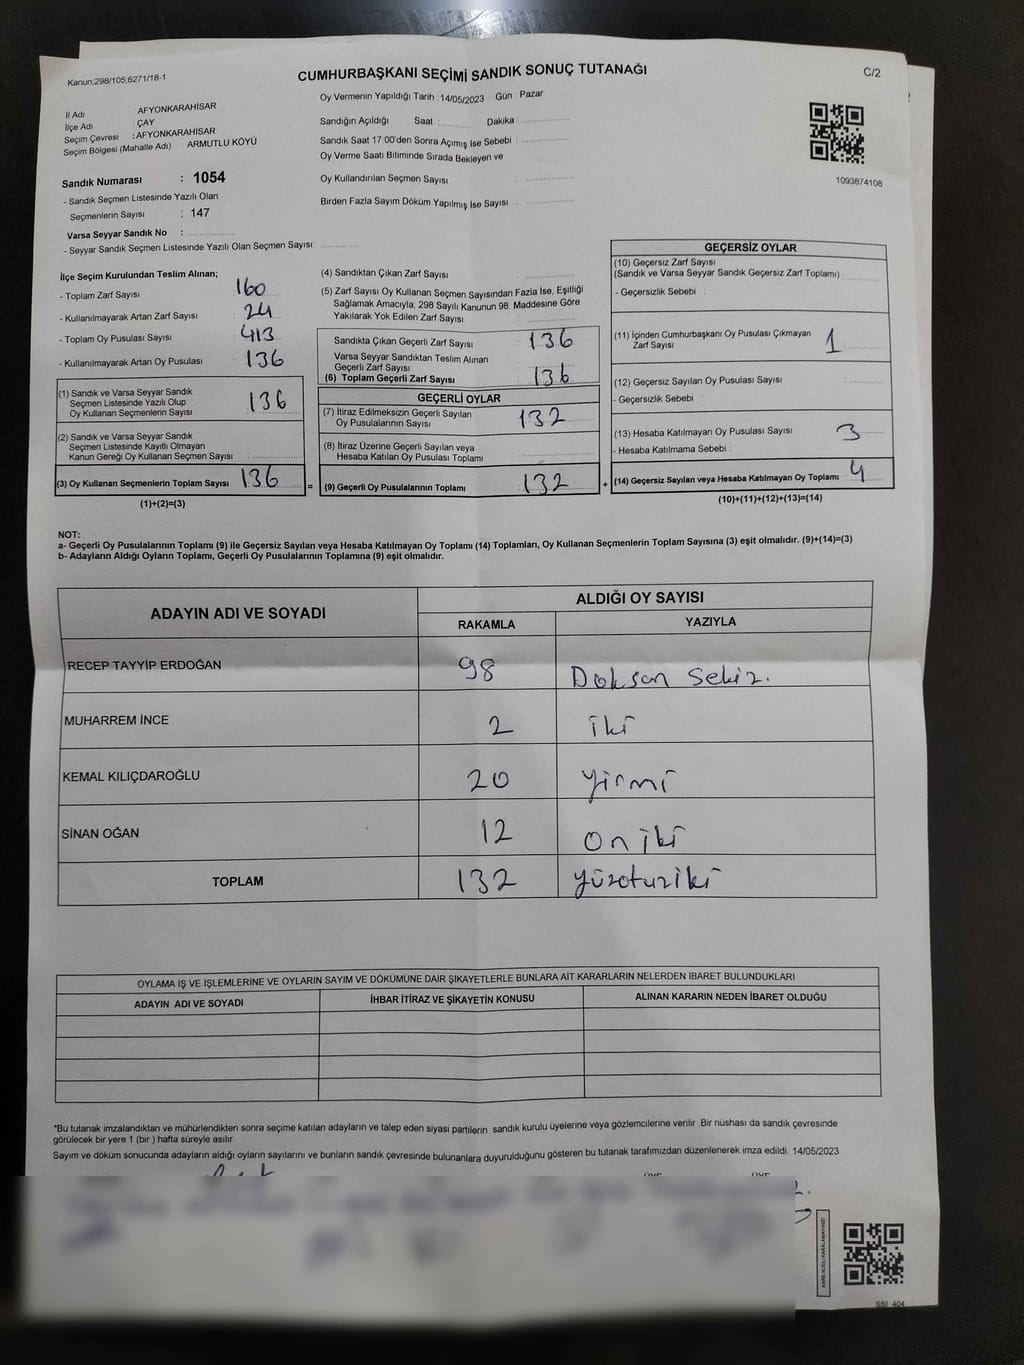 Kanun:298/105,6271/18-1
CUMHURBAŞKANI SEÇİMİ SANDIK SONUÇ TUTANAĞI
C/2
İl Adı : AFYONKARAHİSAR
İlçe Adı : ÇAY
Seçim Çevresi : AFYONKARAHİSAR
Seçim Bölgesi (Mahalle Adı) ARMUTLU KÖYÜ
Oy Vermenin Yapıldığı Tarih : 14/05/2023 Gün : Pazar
Sandığın Açıldığı Saat : Dakika :
Sandık Saat 17 00'den Sonra Açımış İse Sebebi :
Oy Verme Saati Bitiminde Sırada Bekleyen ve
Oy Kullandırılan Seçmen Sayısı :
Birden Fazla Sayım Döküm Yapılmış İse Sayısı :
1093874108
Sandık Numarası : 1054
- Sandık Seçmen Listesinde Yazılı Olan
Seçmenlerin Sayısı : 147
Varsa Seyyar Sandık No :
- Seyyar Sandık Seçmen Listesinde Yazılı Olan Seçmen Sayısı:
İlçe Seçim Kurulundan Teslim Alınan;
- Toplam Zarf Sayısı : 160
- Kullanılmayarak Artan Zarf Sayısı : 24
- Toplam Oy Pusulası Sayısı : 413
- Kullanılmayarak Artan Oy Pusulası : 136
(1) Sandık ve Varsa Seyyar Sandık
Seçmen Listesinde Yazılı Olup
Oy Kullanan Seçmenlerin Sayısı 136
(2) Sandık ve Varsa Seyyar Sandık
Seçmen Listesinde Kayıtlı Olmayan
Kanun Gereği Oy Kullanan Seçmen Sayısı
(3) Oy Kullanan Seçmenlerin Toplam Sayısı 136
(1)+(2)=(3)
(4) Sandıktan Çıkan Zarf Sayısı
(5) Zarf Sayısı Oy Kullanan Seçmen Sayısından Fazla İse, Eşitliği
Sağlamak Amacıyla, 298 Sayılı Kanunun 98. Maddesine Göre
Yakılarak Yok Edilen Zarf Sayısı
Sandıkta Çıkan Geçerli Zarf Sayısı 136
Varsa Seyyar Sandıktan Teslim Alınan
Geçerli Zarf Sayısı
(6) Toplam Geçerli Zarf Sayısı 136
GEÇERLİ OYLAR
(7) İtiraz Edilmeksizin Geçerli Sayılan
Oy Pusulalarının Sayısı 132
(8) İtiraz Üzerine Geçerli Sayılan veya
Hesaba Katılan Oy Pusulası Toplamı
= (9) Geçerli Oy Pusulalarının Toplamı 132
GEÇERSİZ OYLAR
(10) Geçersiz Zarf Sayısı
(Sandık ve Varsa Seyyar Sandık Geçersiz Zarf Toplamı)
- Geçersizlik Sebebi :
(11) İçinden Cumhurbaşkanı Oy Pusulası Çıkmayan
Zarf Sayısı 1
(12) Geçersiz Sayılan Oy Pusulası Sayısı
- Geçersizlik Sebebi :
(13) Hesaba Katılmayan Oy Pusulası Sayısı 3
- Hesaba Katılmama Sebebi :
+ (14) Geçersiz Sayılan veya Hesaba Katılmayan Oy Toplamı 4
(10)+(11)+(12)+(13)=(14)
NOT:
a- Geçerli Oy Pusulalarının Toplamı (9) ile Geçersiz Sayılan veya Hesaba Katılmayan Oy Toplamı (14) Toplamları, Oy Kullanan Seçmenlerin Toplam Sayısına (3) eşit olmalıdır. (9)+(14)=(3)
b- Adayların Aldığı Oyların Toplamı, Geçerli Oy Pusulalarının Toplamına (9) eşit olmalıdır.
ADAYIN ADI VE SOYADI ALDIĞI OY SAYISI
RAKAMLA YAZIYLA
RECEP TAYYİP ERDOĞAN 98 Doksan Sekiz.
MUHARREM İNCE 2 iki
KEMAL KILIÇDAROĞLU 20 yirmi
SİNAN OĞAN 12 on iki
TOPLAM 132 yüzotuziki
OYLAMA İŞ VE İŞLEMLERİNE VE OYLARIN SAYIM VE DÖKÜMÜNE DAİR ŞİKAYETLERLE BUNLARA AİT KARARLARIN NELERDEN İBARET BULUNDUKLARI
ADAYIN ADI VE SOYADI İHBAR İTİRAZ VE ŞİKAYETİN KONUSU ALINAN KARARIN NEDEN İBARET OLDUĞU
*Bu tutanak imzalandıktan ve mühürlendikten sonra seçime katılan adayların ve talep eden siyasi partilerin sandık kurulu üyelerine veya gözlemcilerine verilir .Bir nüshası da sandık çevresinde
görülecek bir yere 1 (bir ) hafta süreyle asılır.
Sayım ve döküm sonucunda adayların aldığı oyların sayılarını ve bunların sandık çevresinde bulunanlara duyurulduğunu gösteren bu tutanak tarafımızdan düzenlenerek imza edildi. 14/05/2023
KARE KODU KARALAMAYINIZ!
SSI_404